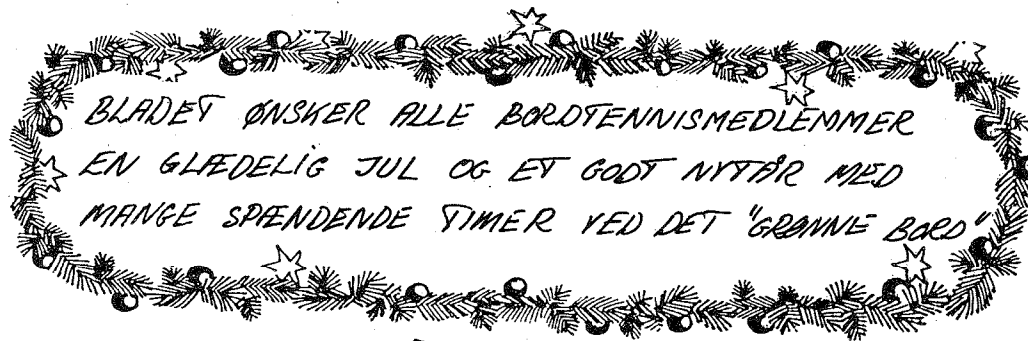 BLADET ØNSKER ALLE BORDTENNISMEDLEMMER
EN GLÆDELIG JUL OG ET GODT NYTÅR MED
MANGE SPÆNDENDE TIMER VED DET "GRØNNE BORD"